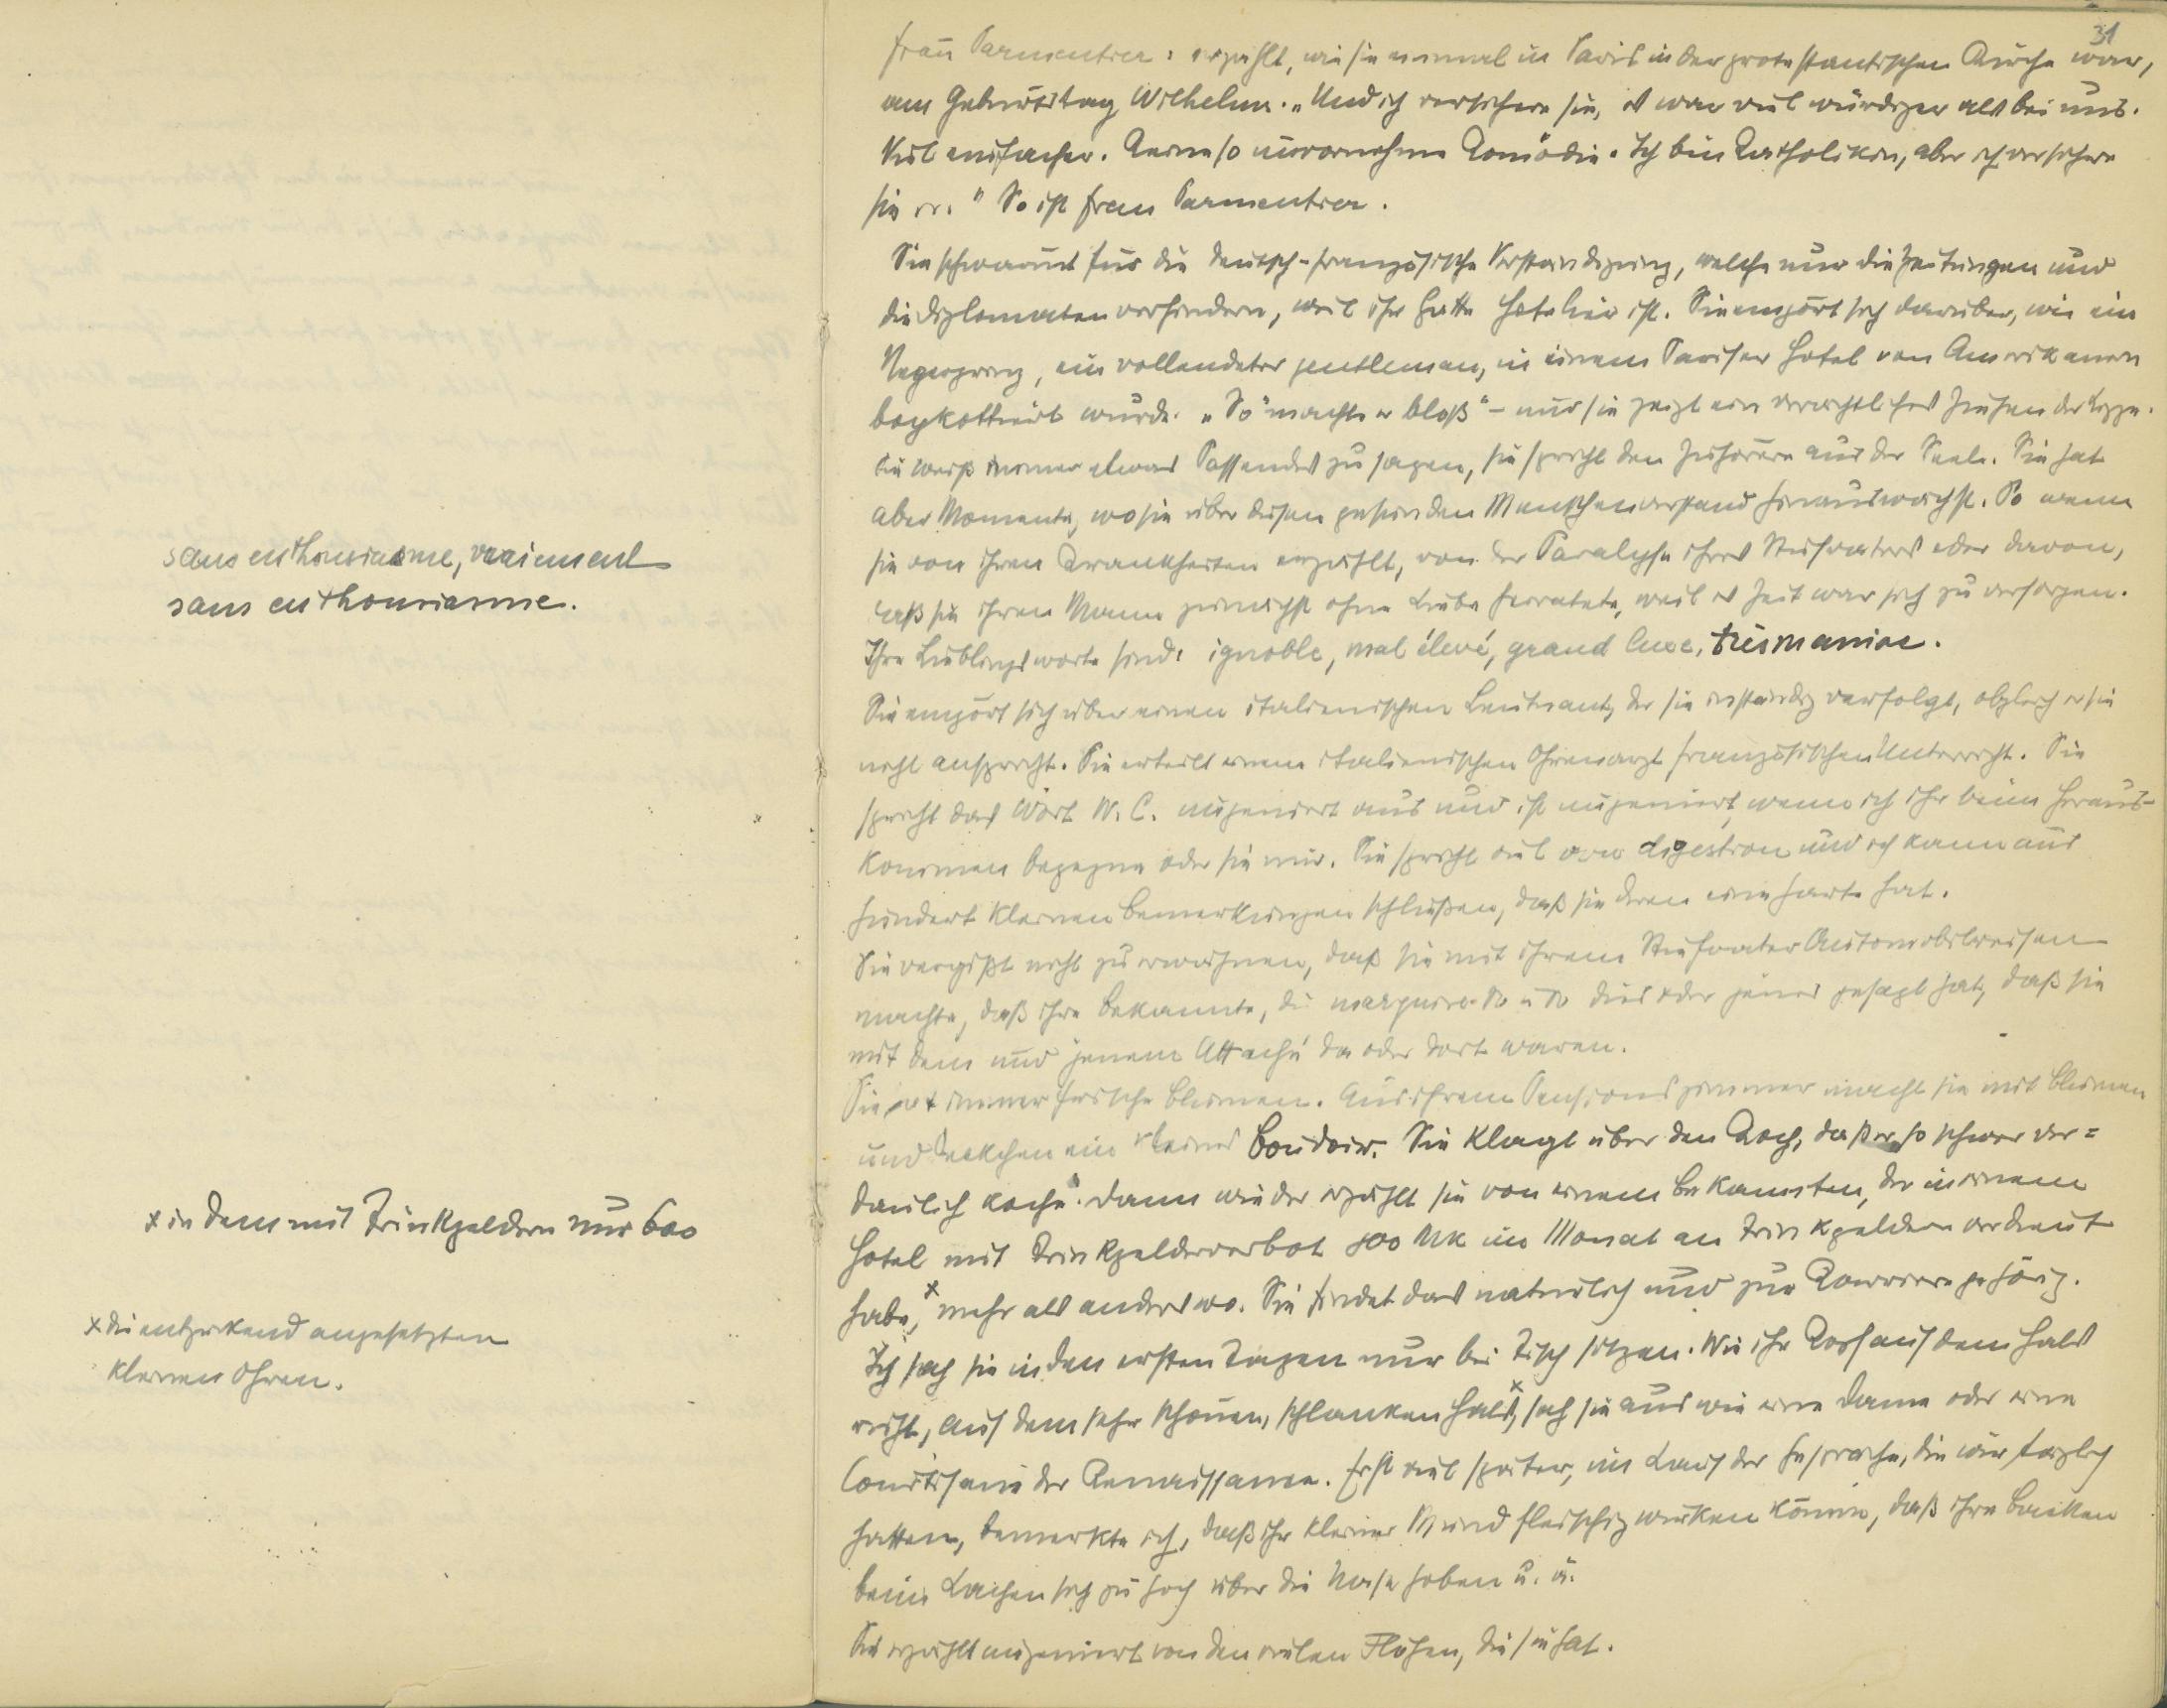 sans enthousiasme, vraiment
sans enthousiasme.
x in dem mit Trinkgeldern nur 600
x die entzückend angesetzten
kleinen Ohren.
31
Frau Parmentier: erzählt, wie sie einmal in Paris in der protestantischen Kirche war,
am Geburtstag Wilhelm. „Und ich versichere sie, es war viel würdiger als bei uns.
Viel einfacher. Keine so unvornehme Komödie. Ich bin Katholikin, aber ich versichere
sie ..." So ist Frau Parmentier.
Sie schwärmt für die deutsch-französische Verständigung, welche nur die Zeitungen und
die Diplomaten verhindern, weil ihr Gatte Hotelier ist. Sie empört sich darüber, wie ein
Negerprinz, ein vollendeter gentleman, in einem Pariser Hotel von Amerikanern
boykottiert wurde. „So machte er bloß" – und sie zeigt ein verächtliches Ziehen der Lippe.
Sie weiß immer etwas Passendes zu sagen, sie spricht den Zuhörern aus der Seele. Sie hat
aber Momente, wo sie über diesen gesunden Menschenverstand hinauswächst. So wenn
sie von ihren Krankheiten erzählt, von der Paralyse ihres Stiefvaters oder davon,
daß sie ihren Mann zunächst ohne Liebe heiratete, weil es Zeit war sich zu versorgen.
Ihre Lieblingsworte sind: ignoble, mal élevé, grand luxe,
Sie empört sich über einen italienischen Leutnant, der sie inständig verfolgt, obgleich er sie
nicht anspricht. Sie erteilt einem italienischen Ohrenarzt französischen Unterricht. Sie
spricht das Wort W. C. ungeniert aus und ist ungeniert, wenn ich ihr beim Heraus-
kommen begegne oder sie mir. Sie spricht viel von digestion und ich kann aus
hundert kleinen Bemerkungen schließen, daß sie deren eine harte hat.
Sie vergißt nicht zu erwähnen, daß sie mit ihrem Stiefvater Automobilreisen
machte, daß ihre Bekannte, die marquise so u so dies oder jenes gesagt hat, daß sie
mit dem und jenem Attaché da oder dort waren.
Sie hat immer frische Blumen. Aus ihrem Pensionszimmer macht sie mit Blumen
und Deckchen ein kleines Boudoir. Sie klagt über den Koch, daß er so schwer ver=
daulich koche. Dann wieder erzählt sie von einem Bekannten, der in einem
Hotel mit Trinkgelderverbot 800 Mk im Monat an Trinkgeldern verdient
habe, x mehr als anderswo. Sie findet das natürlich und zur Karriere gehörig.
Ich sah sie in den ersten Tagen nur bei Tisch sitzen. Wie ihr Kopf auf dem Hals
ruht, auf dem sehr schönen, schlanken Hals, x sah sie aus wie eine Dame oder eine
Courtisane der Renaissance. Erst viel später, im Lauf der Gespräche, die wir täglich
hatten, bemerkte ich, daß ihr kleiner Mund fleischig wirken könne, daß ihre Backen
beim Lachen sich zu hoch über die Nase hoben u. ä.
Sie erzählt ungeniert von den vielen Flöhen, die sie hat.